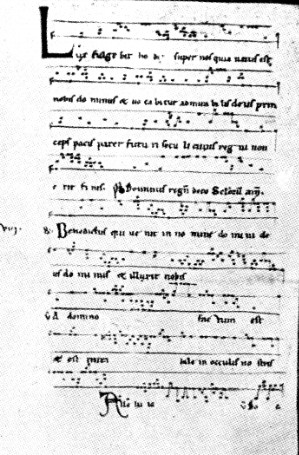 Lux fulge bit ho di super nos quia natus est
nobis do minus & uo ca bitur admira bi lis deus prin
ceps pacis pater futu ri secu li cuius reg ni non
e rit fi nis. ps Dominus regn deco Scło Eu am.
Benedictus qui ue nit in no mine do mi ni de
us do mi nus & illuxit nobis
V A domino fac tum est
& est mira bile in occulis no stris
Alle lu ia